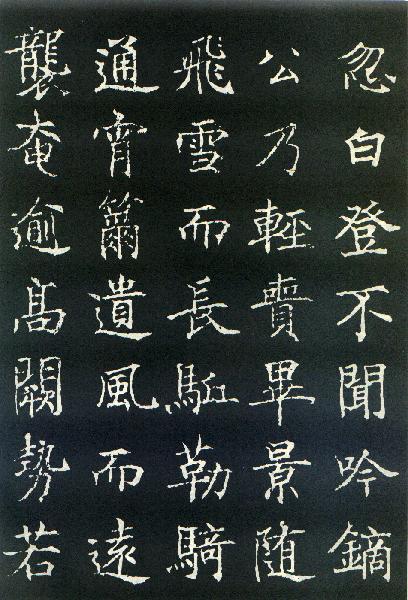 忽白登不聞吟鏑
公乃輕賷畢景随
飛雪而長駈勒騎
通宵籋遺風而遠
襲奄逾髙闕勢若